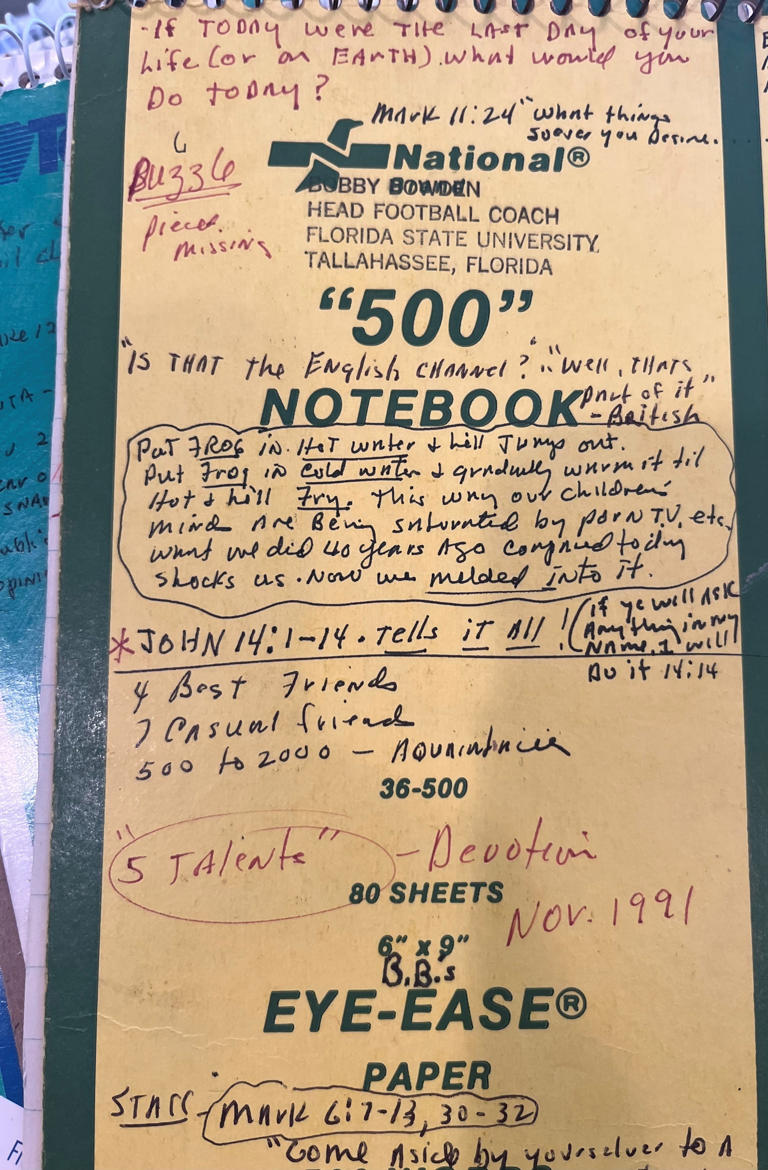 -If TODAY were THE LAST DAY of your
Life (or on EARTH) what would you
Do TODAY?
Mark 11:24 "what things
soever you Desire.
National®
BOBBY BOWDEN
HEAD FOOTBALL COACH
FLORIDA STATE UNIVERSITY
TALLAHASSEE, FLORIDA
pieces
missing
"500"
"IS THAT the ENglish CHANNEL?" "Well, THATS
part of it"
- British
NOTEBOOK
Put FROG in Hot water & he'll Jump out.
Put Frog in Cold water & gradually warm it til
Hot & he'll Fry. This way our children's
mind Are Being saturated by porn T.V. etc.
what we did 40 years Ago compared today
shocks us. Now we melded into it.
* JOHN 14:1-14. Tells it All!
(if ye will Ask
Anything in my
NAME, I will
Do it 14:14
4 Best Friends
7 Casual friend
500 to 2000 - Aquaintancies
36-500
"5 TAlents" - Devotion
80 SHEETS
Nov. 1991
6" x 9"
B.B.'s
EYE-EASE®
PAPER
STAFF - Mark 6:7-13, 30-32
"Come Aside by yourselves to A